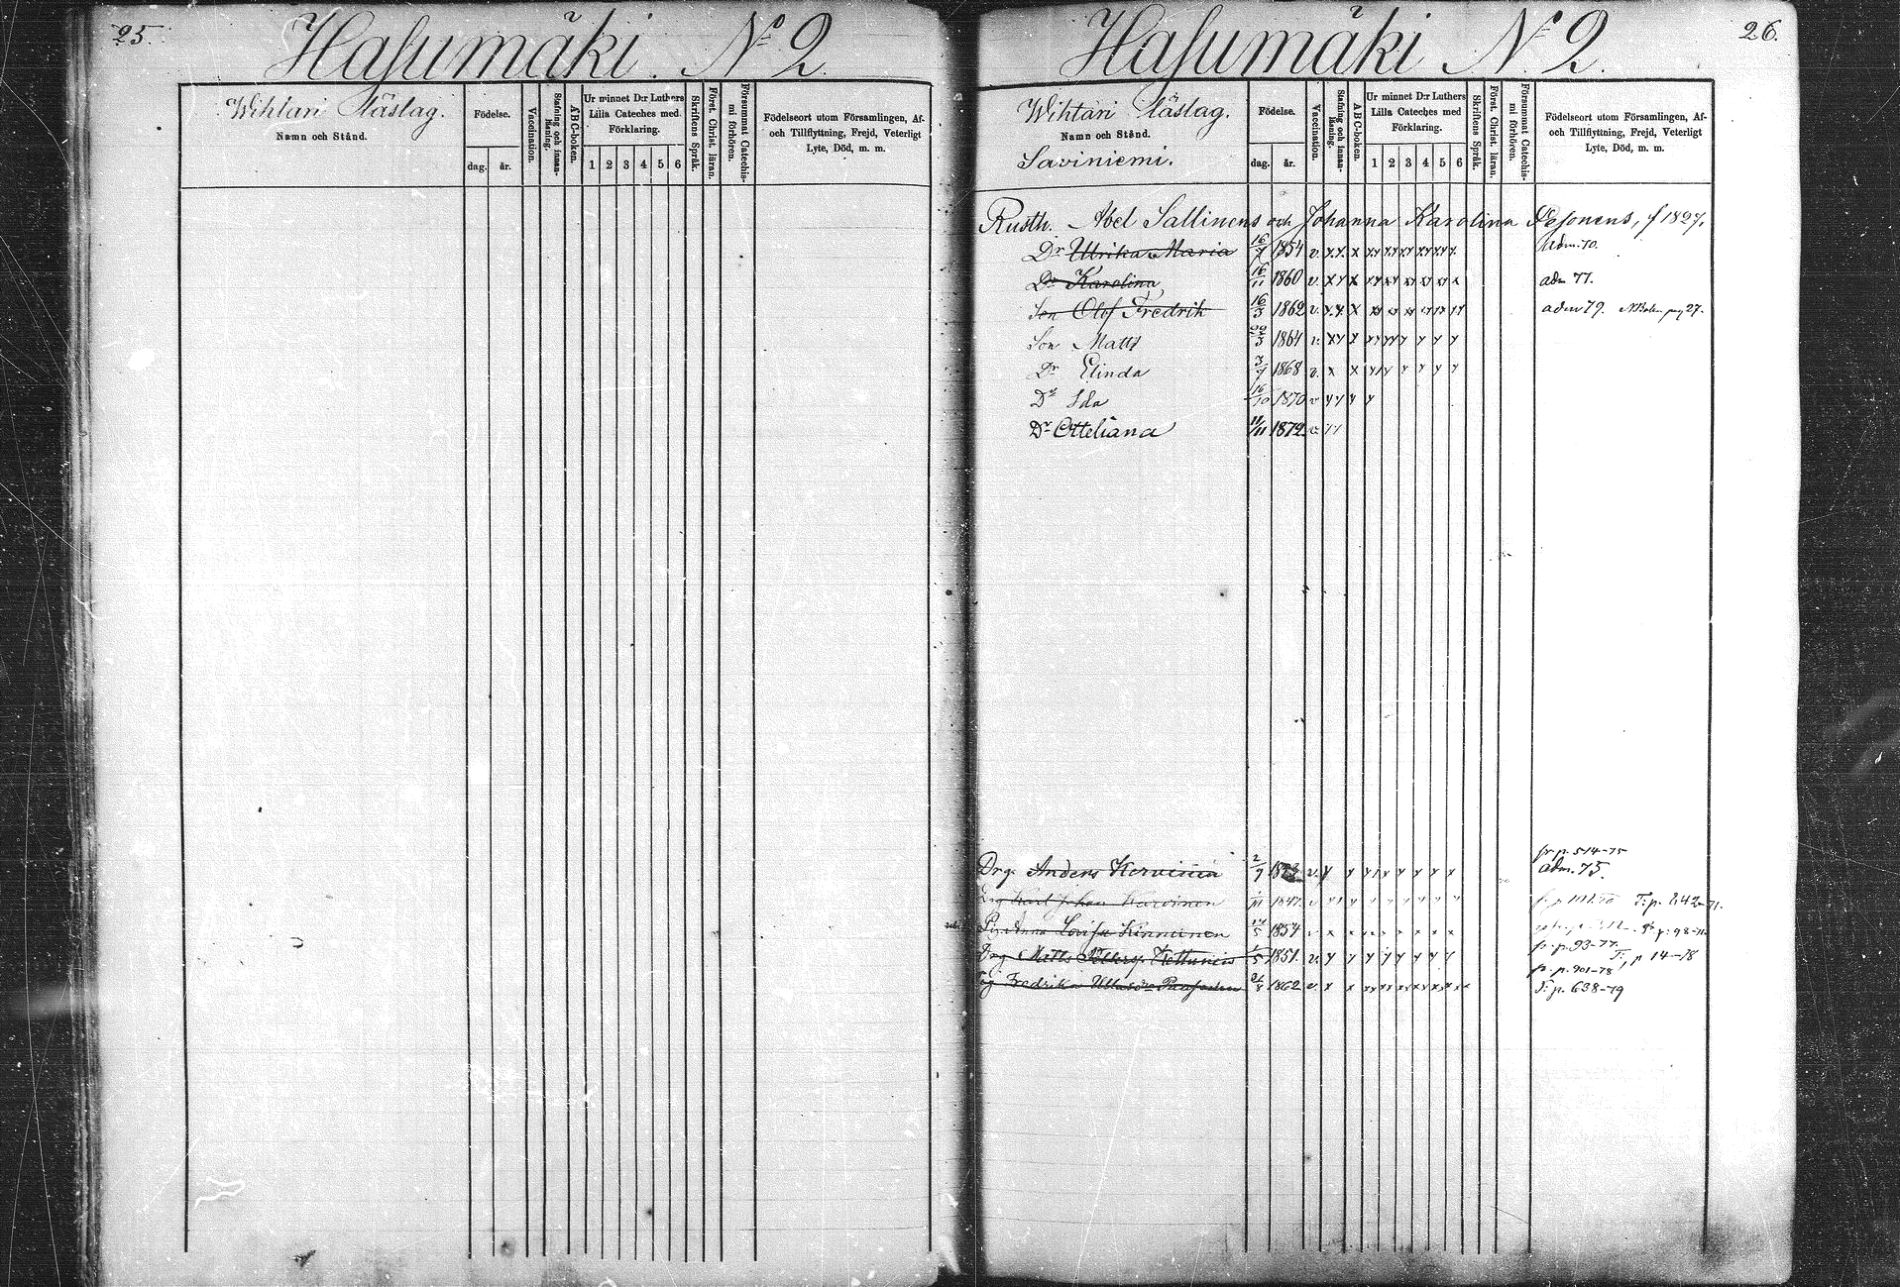 25.
Hasumäki. N:o 2.
Wihtari Läslag.
Namn och Stånd.
Födelse.
dag. år.
Vaccination.
Stafning och innan-läsning.
ABC-boken.
Ur minnet D:r Luthers Lilla Cateches med Förklaring.
1 2 3 4 5 6
Skriftens Språk.
Först. Christ. läran.
Försummat Catechis-mi förhören.
Födelseort utom Församlingen, Af- och Tillflyttning, Frejd, Veterligt Lyte, Död, m. m.
26.
Hasumäki N:o 2.
Wihtari Läslag.
Namn och Stånd.
Saviniemi.
Födelse.
dag. år.
Vaccination.
Stafning och innan-läsning.
ABC-boken.
Ur minnet D:r Luthers Lilla Cateches med Förklaring.
1 2 3 4 5 6
Skriftens Språk.
Först. Christ. läran.
Försummat Catechis-mi förhören.
Födelseort utom Församlingen, Af- och Tillflyttning, Frejd, Veterligt Lyte, Död, m. m.
Rusth. Abel Sallinens och Johanna Karolina f 1827.
Dr Ulrika Maria 1854 v. Adm. 70.
Dr Karolina 16/11 1860 v. adm 77.
Son Olof Fredrik 16/3 1862 v. adm 79. pag 27.
Son Matts 1864 v.
Dr Elinda 1868 v.
Dr Ida 16/10 1870 v
Dr Otteliana 11/11 1872 v
fr. p. 514-75
Drg. Anders Korvinen 2/9 v. adm. 75.
Drg Karl Johan Karvinen 1847. v T: p. 242-71.
Pig Anna Lovisa Kinnunen 1854 v p: 98-71.
fr. p. 93-77.
Drg Matts Kettunen 1851. v. T: p 14-78
fr. p. 901-78
Fredrika 1862 v. T: p. 638-79